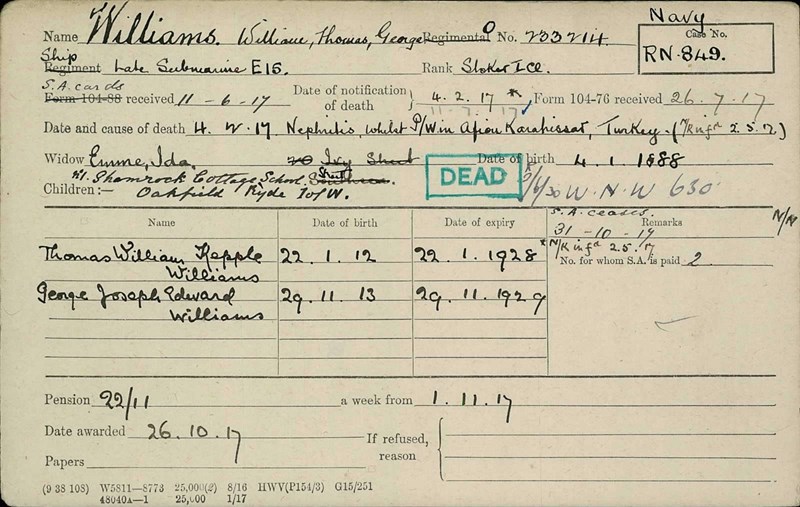 Navy
Name Williams. William, Thomas, George Regimental No. 233214.
Case No.
RN-849.
Ship
Regiment Late Submarine E15. Rank Stoker I Cl.
S.A. cards
Form 104-88 received 11-6-17 Date of notification of death 4.2.17 * Form 104-76 received 26.7.17
11.7.17
Date and cause of death 4.2.17 Nephritis, whilst P/W in Afion Karahissar, Turkey.
Widow Emme, Ida. Ivy Street Date of birth 4.1.1888
DEAD
Shamrock Cottage School Street
W.N.W 630
Children:— Oakfield Ryde I of W.
Name Date of birth Date of expiry Remarks
S.A. ceases.
31-10-17
N/N
Thomas William Kepple Williams 22.1.12 22.1.1928
No. for whom S.A. is paid 2
George Joseph Edward Williams 29.11.13 29.11.1929
Pension 22/11 a week from 1.11.17
Date awarded 26.10.17
If refused, reason
Papers
(9 38 108) W5811—8773 25,000(2) 8/16 HWV(P154/3) G15/251
48040A—1 25,000 1/17